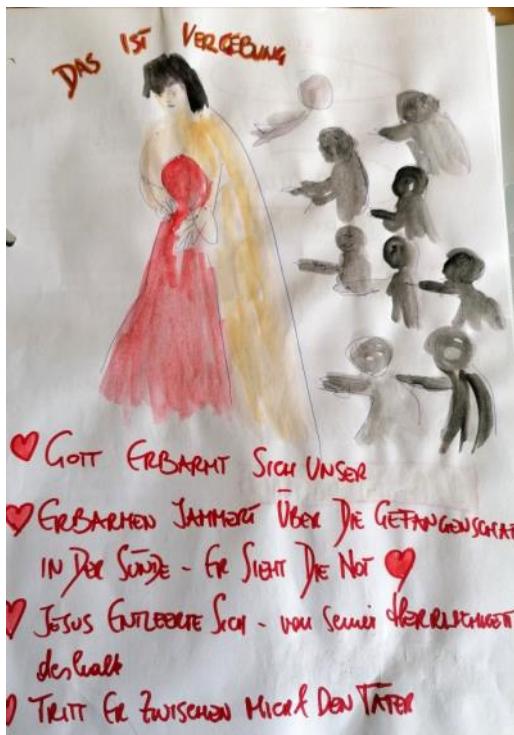 DAS IST VERGEBUNG
GOTT ERBARMT SICH UNSER
ERBARMEN JAMMERT ÜBER DIE GEFANGENSCHAF
IN DER SÜNDE - ER SIEHT DIE NOT
JESUS ENTLEERTE SICH - von seiner HERRLICHKEIT
deshalb
TRITT ER ZWISCHEN MICH & DEN TÄTER